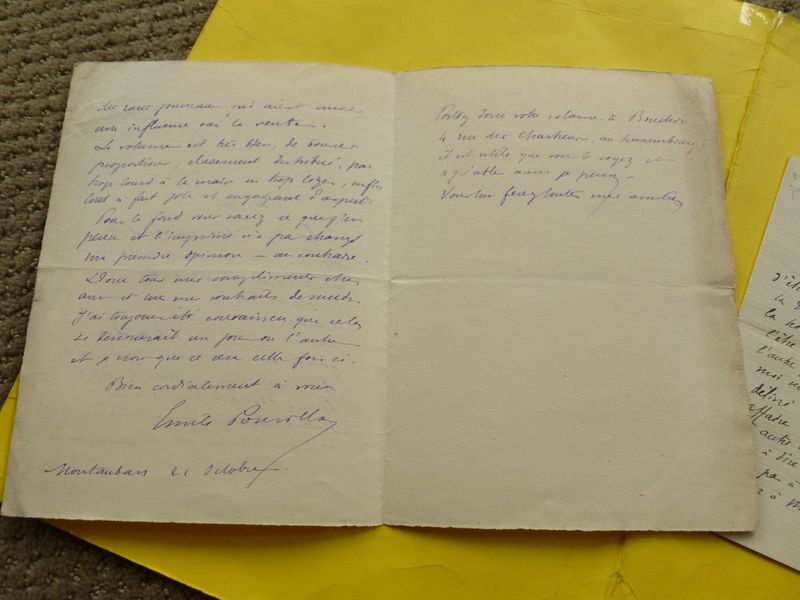 des rares journaux qui aient encore
une influence sur la vente.
Le volume est très bien, de bonnes
proportions, clairement distribué, pas
trop lourd à la main ni trop léger, enfin
tout à fait joli et engageant d'aspect.
Pour le fond vous savez ce que j'en
pense et l'imprimé n'a pas changé
ma première opinion — au contraire.
Donc tous mes compliments cher
ami et tous mes souhaits de succès.
J'ai toujours été convaincu que cela
se dénouerait un jour ou l'autre
et je crois que ce sera cette fois ci.
Bien cordialement à vous
Emile Pouvillon
Montauban 21 Octobre
Portez donc votre volume à
4 rue des Chartreux, au Luxembourg
il est utile que vous le voyez et
agréable aussi je pense.
Vous lui ferez toutes mes amitiés
d'êt
la
l'être
l'autre
moi
délivré
affaire
autre
à dire
pas à